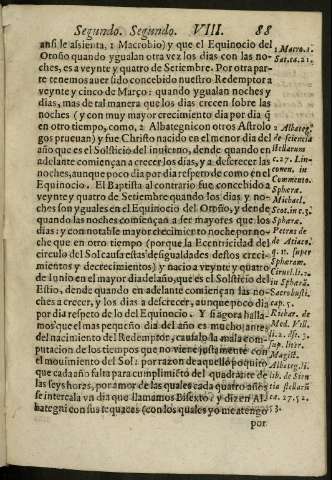 Segundo. Segundo. VIII. 88
ansi le assienta, 1 Macrobio) y que el Equinocio del
Otoño quando ygualan otra vez los dias con las no-
ches, es a veynte y quatro de Setiembre. Por otra par-
te tenemos auer sido concebido nuestro Redemptor a
veynte y cinco de Março: quando ygualan noches y
dias, mas de tal manera que los dias crecen sobre las
noches (y con muy mayor crecimiento dia por dia q̃
en otro tiempo, como, 2 Albategni con otros Astrolo
gos prueuan) y fue Christo nacido en el menor dia del
año que es el Solsticio del inuierno, dende quando en
adelante comiençan a crecer los dias, y a descrecer las
noches, aunque poco dia por dia respeto de como en el
Equinocio. El Baptista al contrario fue concebido a
veynte y quatro de Setiembre quando los dias y no-
ches son yguales en el Equinocio del Otoño, y dende
quando las noches comiençan a ser mayores que los
dias: y con notable mayor crecimiento noche por no-
che que en otro tiempo (porque la Eccentricidad del
circulo del Sol causa estas desigualdades destos creci-
mientos y decrecimientos) y nacio a veynte y quatro
de Iunio en el mayor dia del año, que es el Solsticio del
Estio, dende quando en adelante comiençan las no-
ches a crecer, y los dias a descrecer, aunque poco dia
por dia respeto de lo del Equinocio. Y si agora halla-
mos que el mas pequeño dia del año es mucho antes
del nacimiento del Redemptor, causalo la mala com-
putacion de los tiempos que no viene justamente con
el mouimiento del Sol: por razon de aquello poquito
que cada año falta para cumplimiẽto del quadrante de
las seys horas, por amor de las quales cada quatro años
se intercala vn dia que llamamos Bisexto: y dizen Al-
bategni con sus sequaces (con los quales yo me atengo
por
1 Macro. 1.
Sat. ca. 21.
2 Albateg.
de sciencia
stellarum
c. 27. Lin-
conien. in
Commento.
Spheræ
Michael.
Scot. in c. 3.
Spheræ.
Petrus de
de Aliaco.
q. 11. super
Spheram.
Ciruel. li. 2.
in Spheræ.
Sacrobusti.
cap. 5.
Richar. de
Med. Vill.
li. 2. dist. 3.
sup. liter.
Magist.
Albateg. li.
lib. de Scien
tia stellarũ
ca. 27. 52.
53.